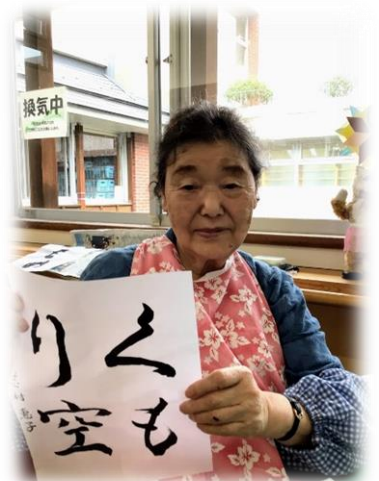 換気中
くも
り空